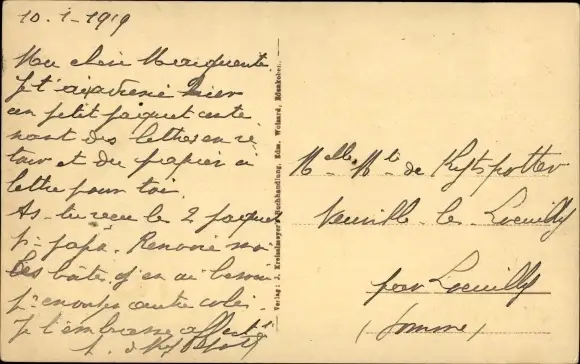 10-1-1919
Ma chère Marguerite
Je t'ai adressé hier
un petit paquet conte
nant des lettres en re
tour et du papier à
lettre pour toi.
As-tu reçu le 2 paquet
pr papa. Renvoie moi
les boîte, j'en ai besoin
pr envoyer autre colis.
Je t'embrasse affectt
Verlag: J. Kreiselmeyer's Buchhandlung, Edm. Weinard, Edenkoben.
Melle Mte de Kytspotter
Neuville-les-Loeuilly
par Loeuilly
(Somme)